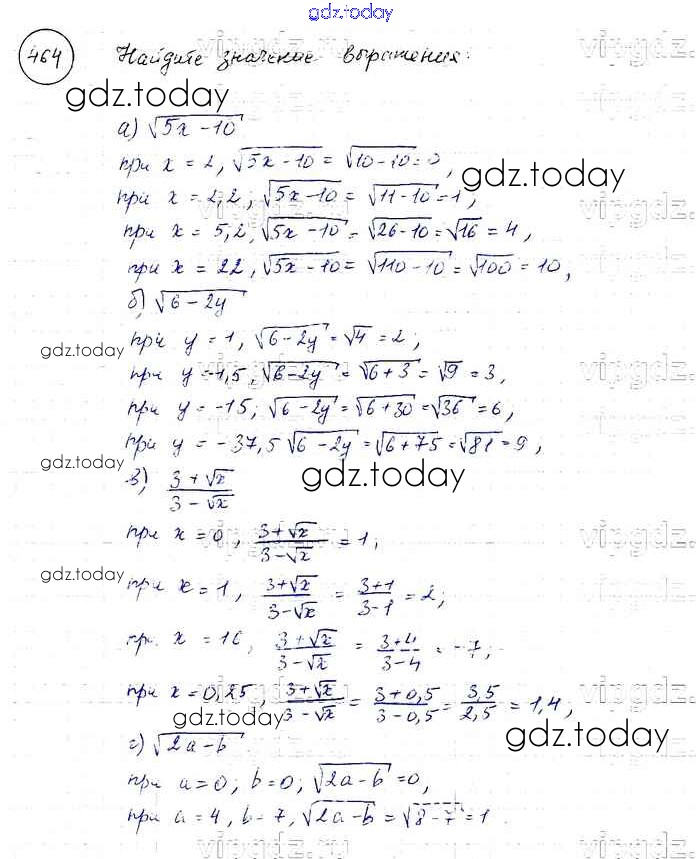 gdz.today
464 Найдите значение выражения:
gdz.today
а) √5x − 10
при x = 2, √5x − 10 = √10 − 10 = 0,
gdz.today
при x = 2,2; √5x − 10 = √11 − 10 = 1,
при x = 5,2, √5x − 10 = √26 − 10 = √16 = 4,
при x = 22, √5x − 10 = √110 − 10 = √100 = 10,
б) √6 − 2y
при y = 1, √6 − 2y = √4 = 2;
gdz.today
при y = −1,5, √6 − 2y = √6 + 3 = √9 = 3,
при y = −15; √6 − 2y = √6 + 30 = √36 = 6,
при y = −37,5 √6 − 2y = √6 + 75 = √81 = 9,
gdz.today
в) (3 + √x)/(3 − √x)
gdz.today
при x = 0, (3 + √x)/(3 − √x) = 1;
gdz.today
при x = 1, (3 + √x)/(3 − √x) = (3 + 1)/(3 − 1) = 2;
пр. x = 16, (3 + √x)/(3 − √x) = (3 + 4)/(3 − 4) = −7;
при x = 0,25, (3 + √x)/(3 − √x) = (3 + 0,5)/(3 − 0,5) = 3,5/2,5 = 1,4,
gdz.today
gdz.today
г) √2a − b
при a = 0; b = 0; √2a − b = 0,
при a = 4, b − 7, √2a − b = √8 − 7 = 1